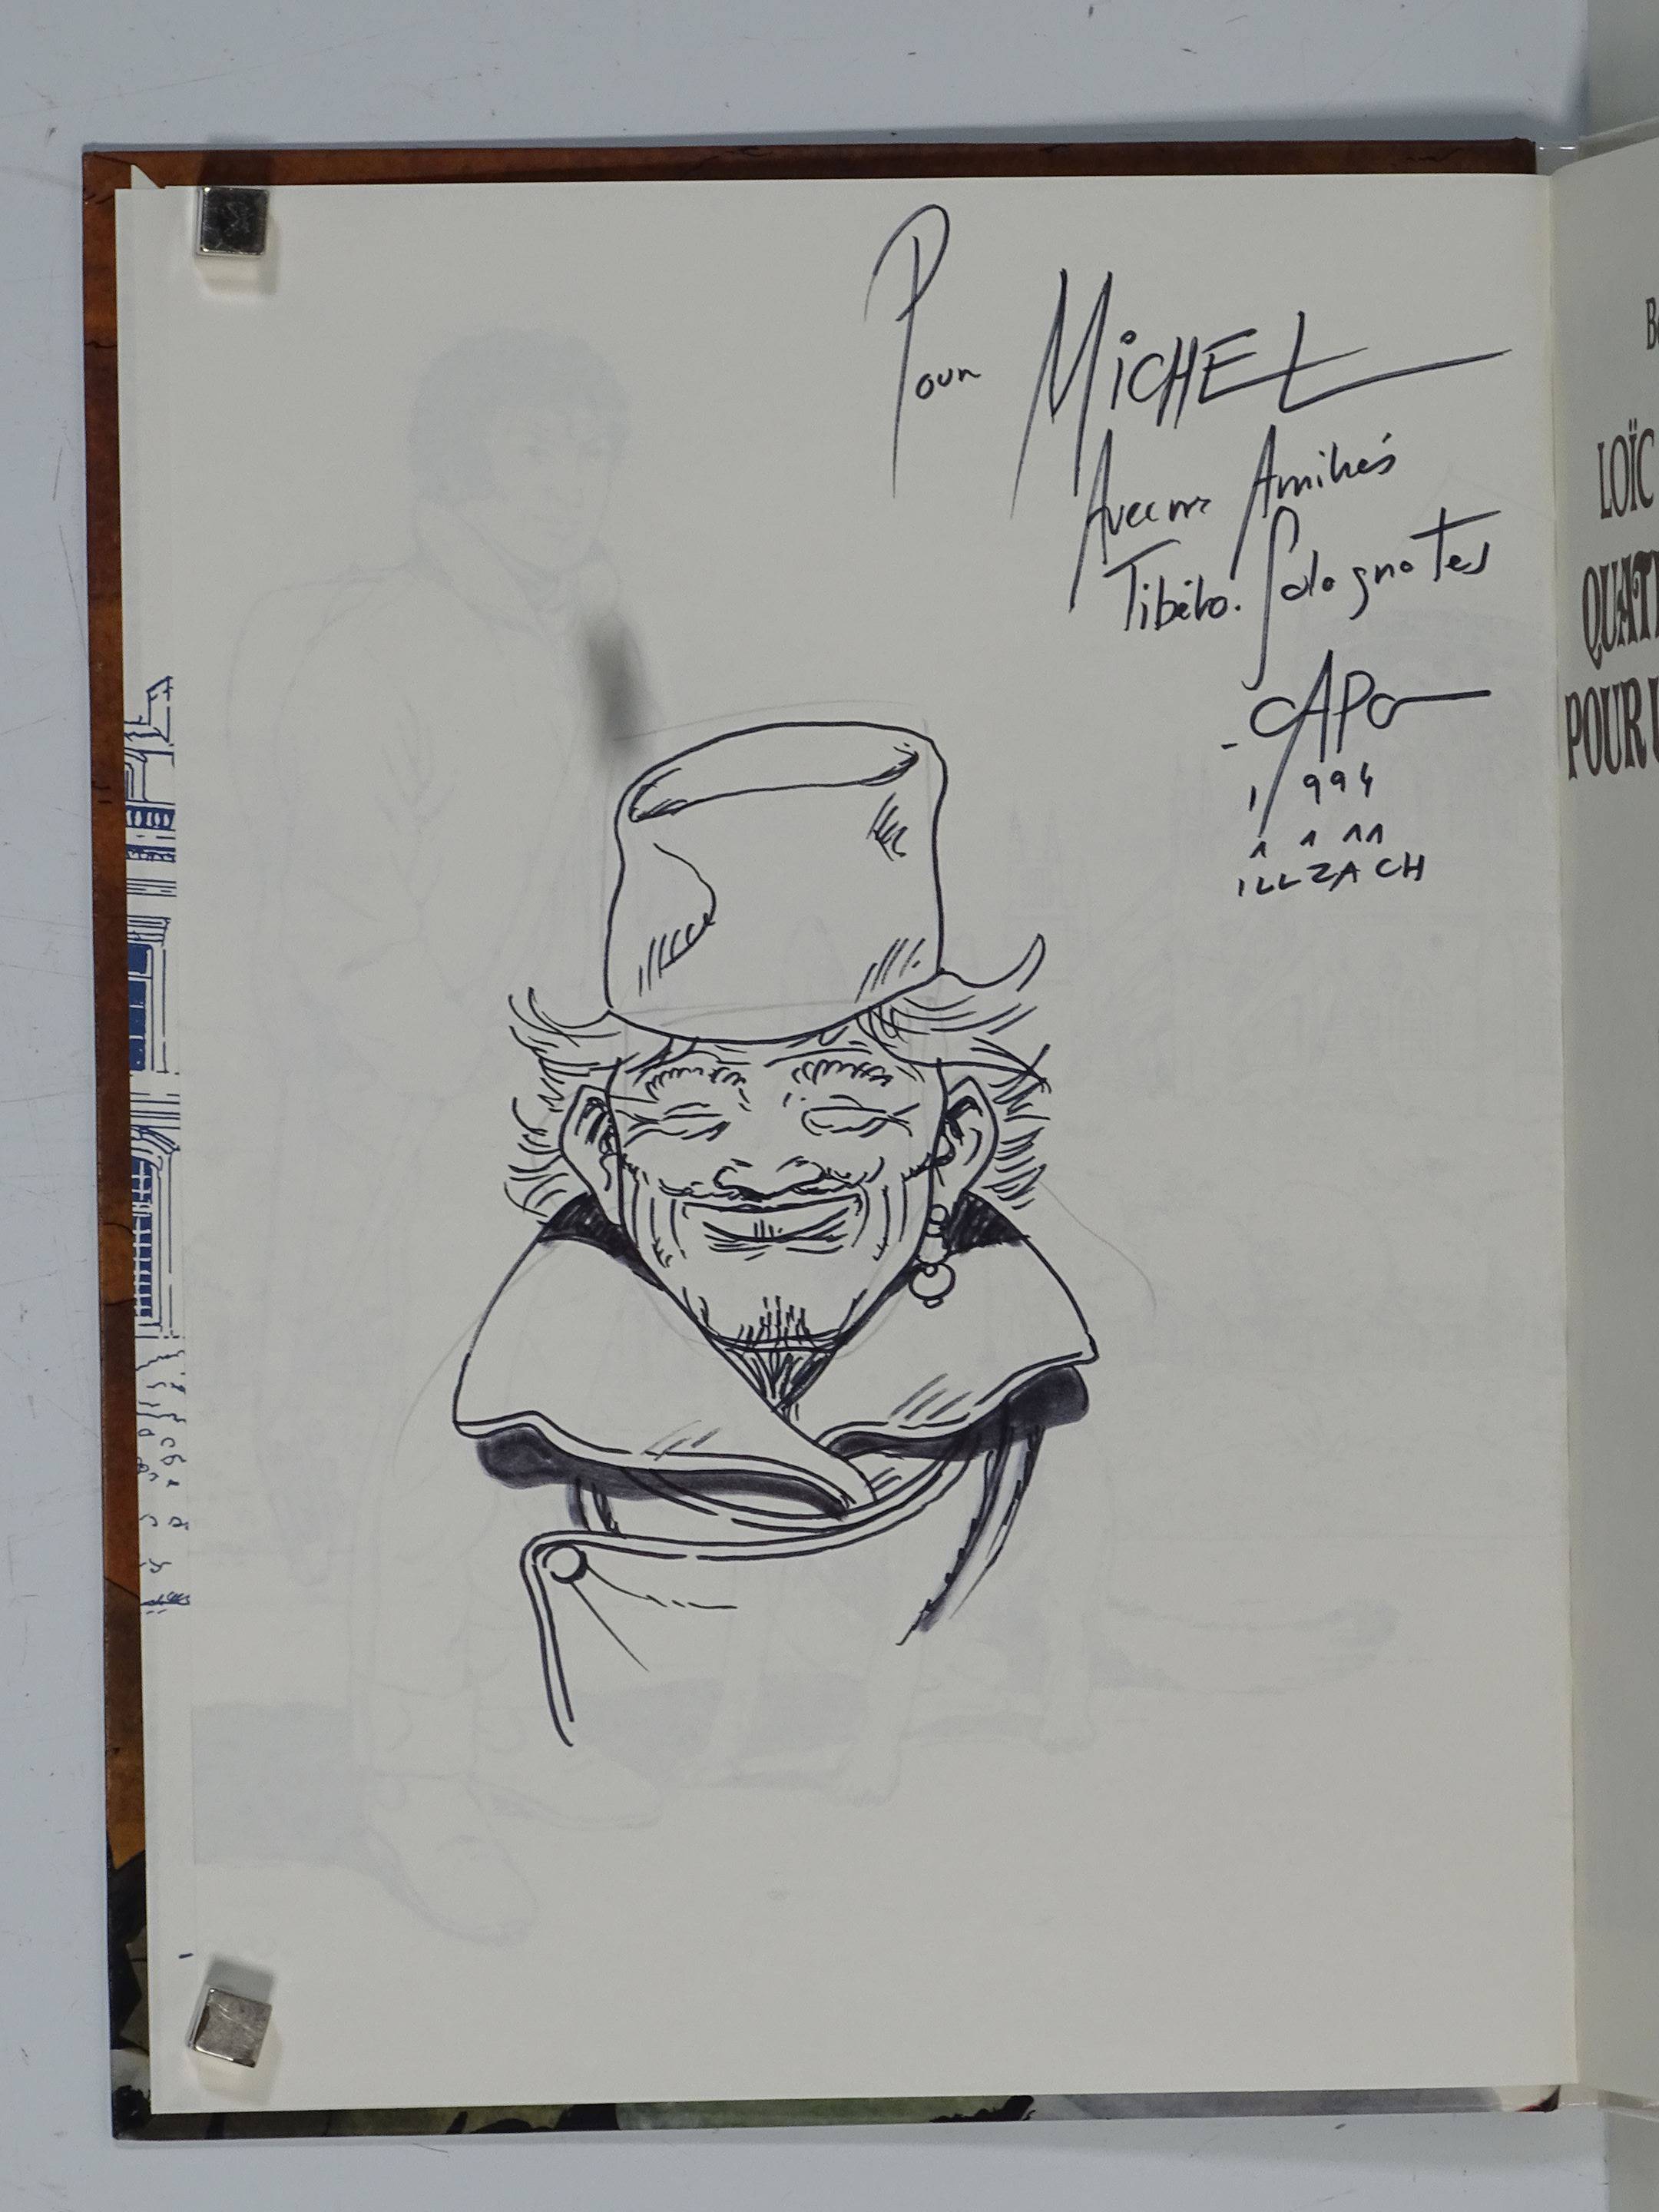 Pour MICHEL
Avec mes Amitiés
Tibéto. Solognotes
CAPO
1994
ILLZACH
LOÏC
QUAT
POUR